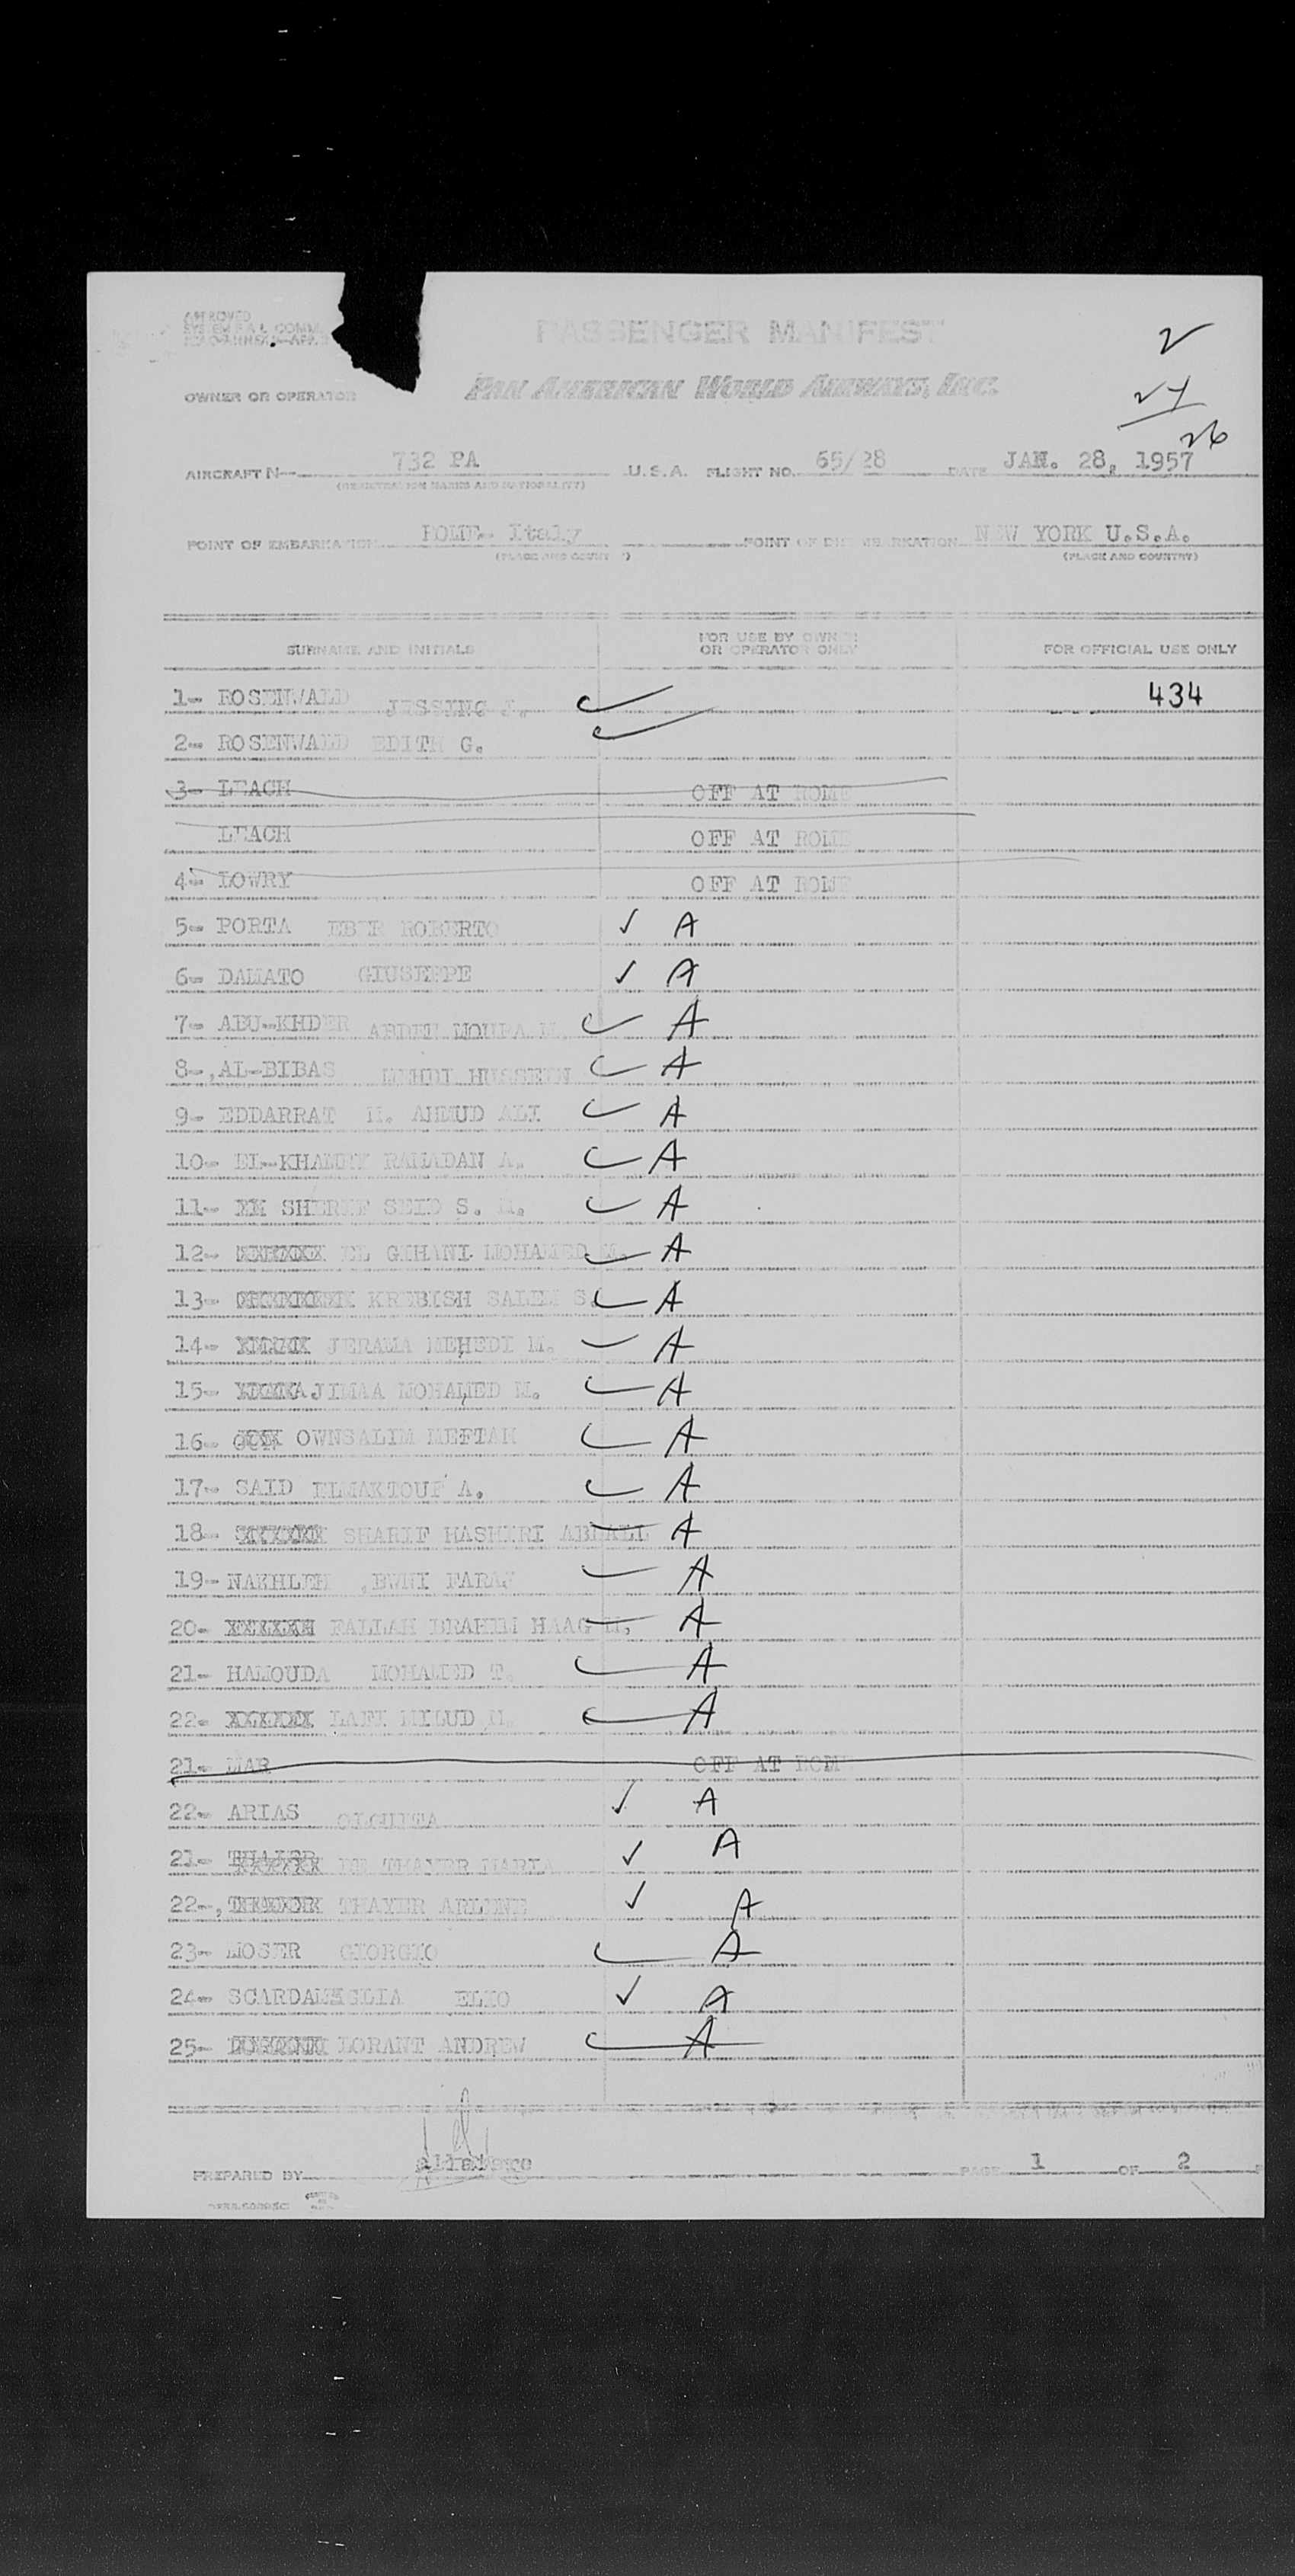 APPROVED
OWNER OR OPERATOR
PASSENGER MANIFEST
PAN AMERICAN WORLD AIRWAYS, INC.
2
24
26
AIRCRAFT N 732 PA U.S.A. FLIGHT NO. 65/28 DATE JAN. 28, 1957
(REGISTRATION MARKS AND NATIONALITY)
POINT OF EMBARKATION ROME- Italy POINT OF DISEMBARKATION NEW YORK U.S.A.
(PLACE AND COUNTRY) (PLACE AND COUNTRY)
SURNAME AND INITIALS FOR USE BY OWNER OR OPERATOR ONLY FOR OFFICIAL USE ONLY
1- ROSENWALD J. 434
2- ROSENWALD EDITH G.
3- LEACH OFF AT ROME
LEACH OFF AT ROME
4- LOWRY OFF AT ROME
5- PORTA EBER ROBERTO ✓ A
6- DAMATO GIUSEPPE ✓ A
7- ABU-KHDER A
8-,AL-BIBAS HUSSEIN A
9- EDDARRAT M. AHMUD ALI A
10- RAMADAN A. A
11- SHEREF SEID S. M. A
12- EL GIHANI MOHAMED M. A
13- KREBISH SALEM S. A
14- JERAMA MEHEDI M. A
15- JIMAA MOHAMED M. A
16- OWNSALIM MEFTAH A
17- SAID ELMAKTOUF A. A
18- SHARIF A
19- NAKHLEH A
20- FALLAH BRAHIM HAAG M. A
21- HAMOUDA MOHAMED T. A
22- LAFI MILUD M. A
21- MAR OFF AT ROME
22- ARIAS ✓ A
21- DE THAYER MARIA ✓ A
22-, THAYER ARLENE ✓ A
23- MOSER GIORGIO A
24- SCARDAMAGLIA ELIO ✓ A
25- LORANT ANDREW A
PREPARED BY PAGE 1 OF 2